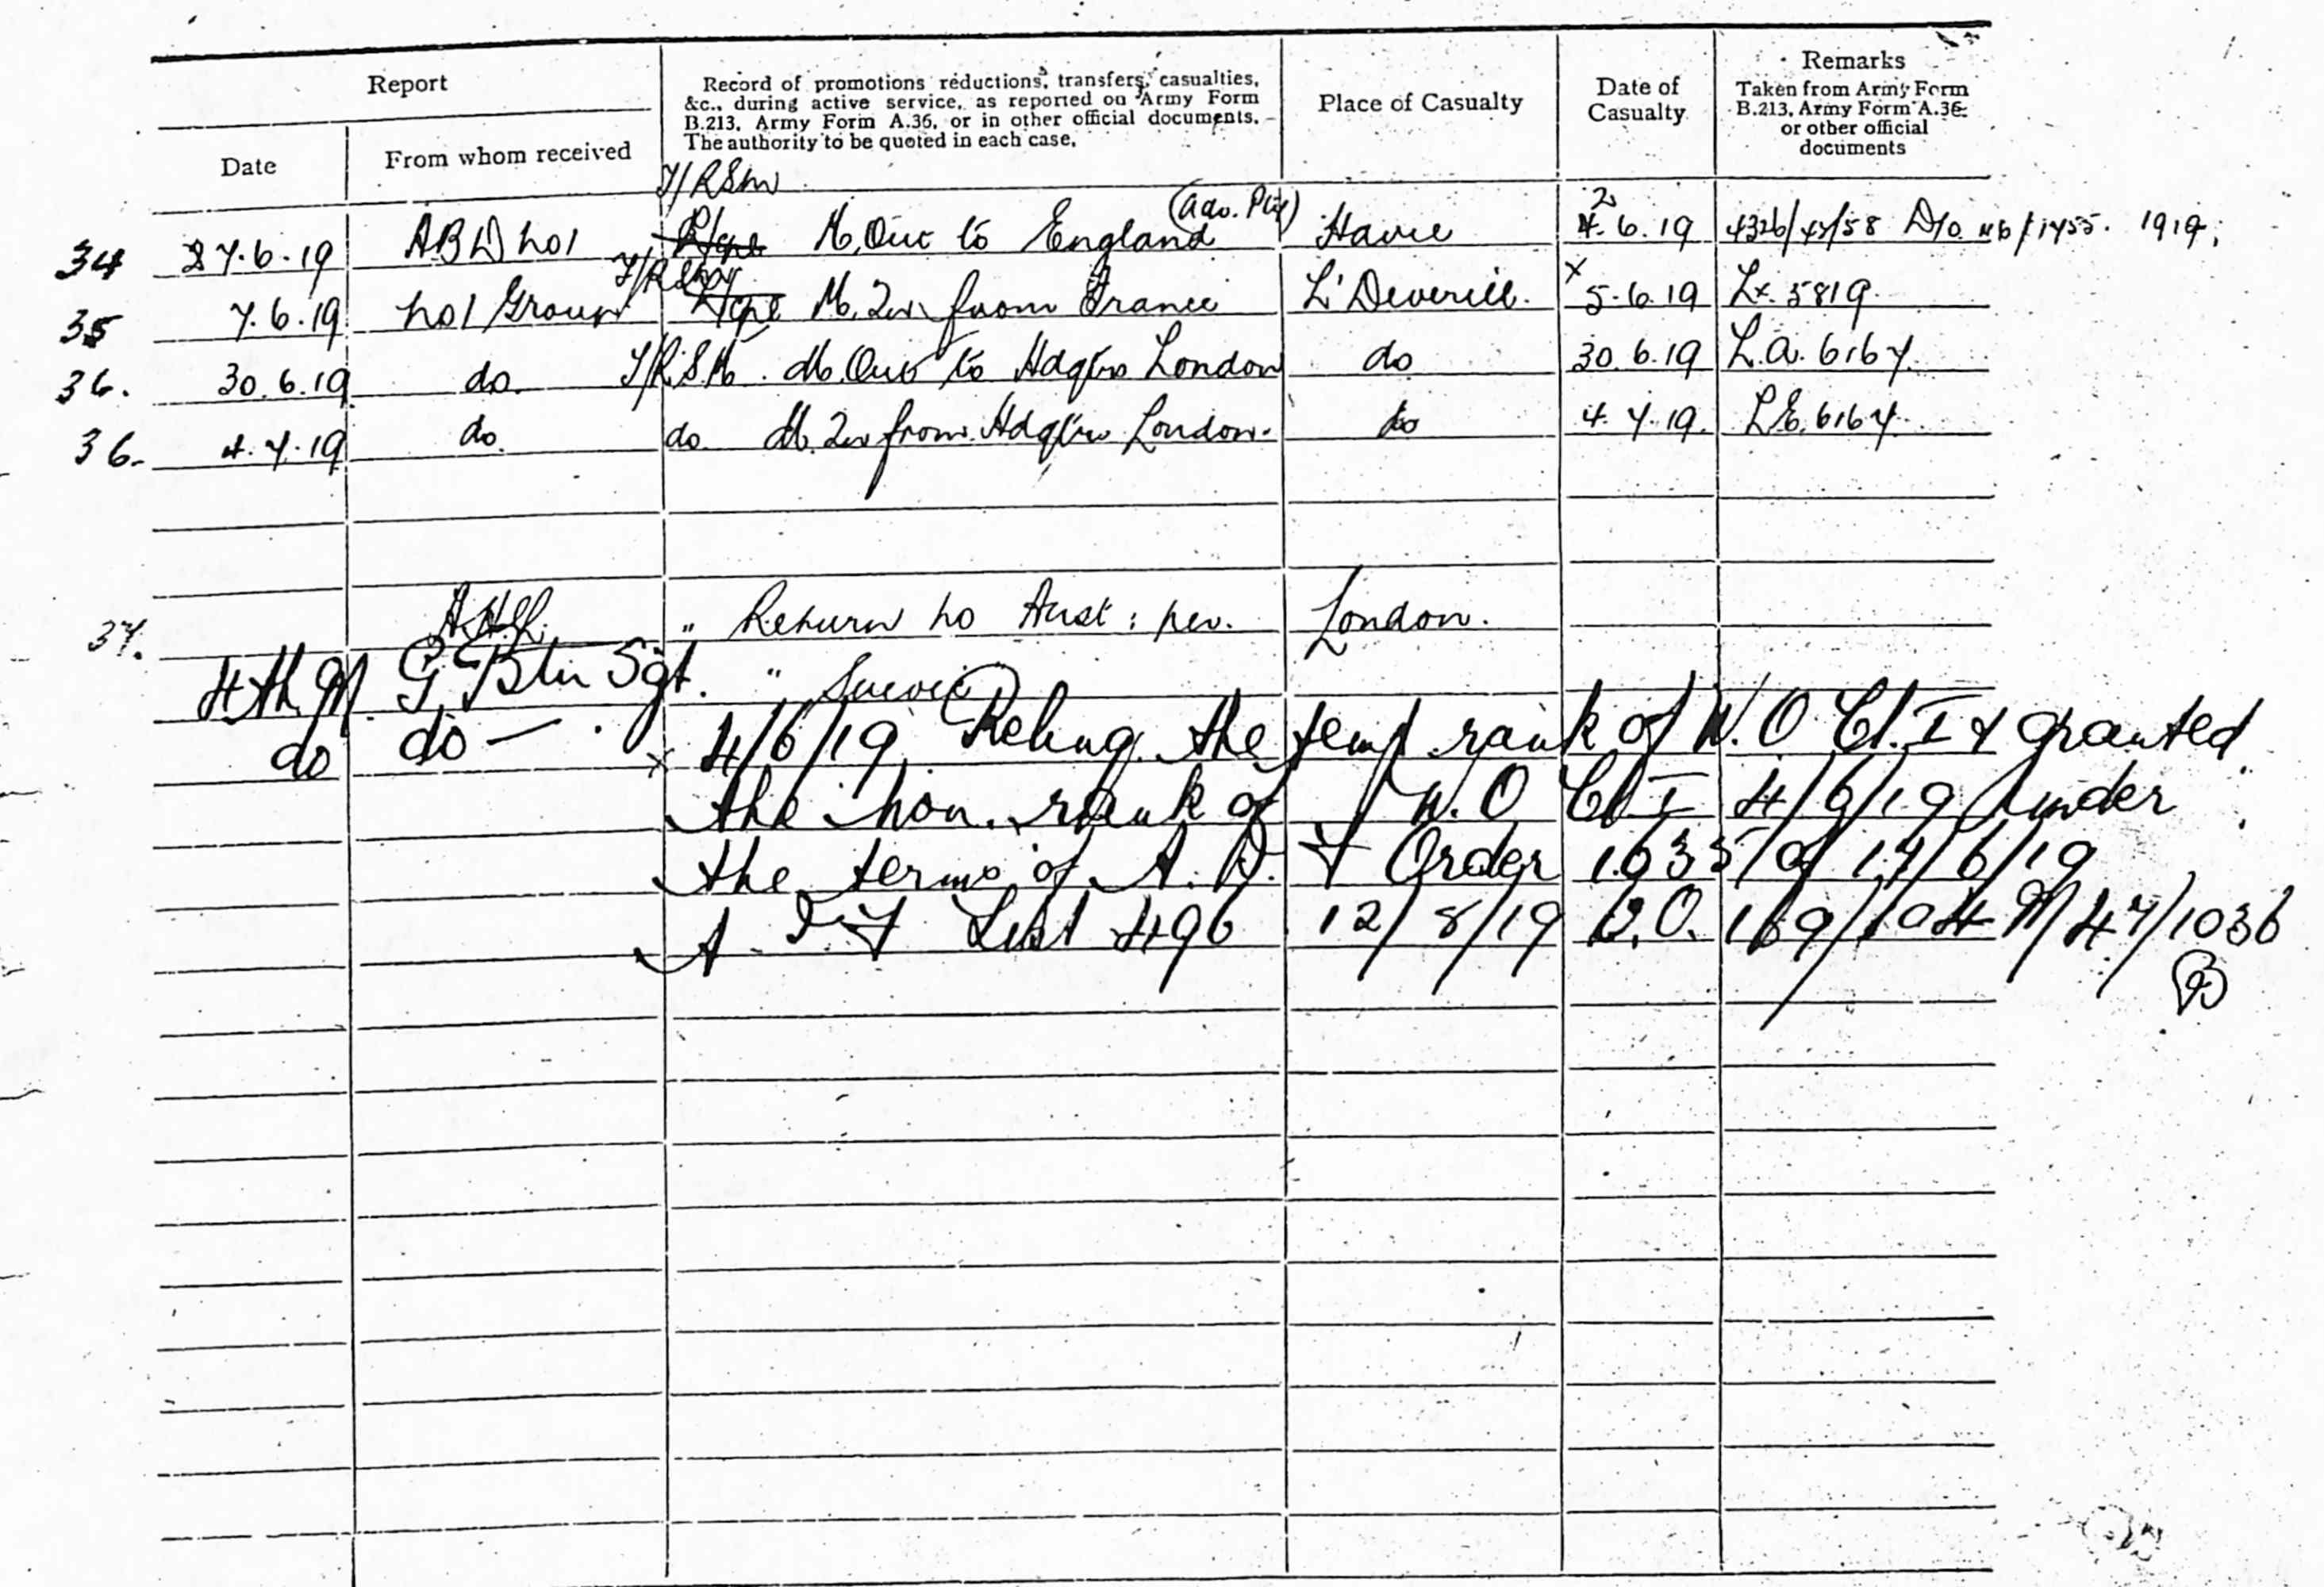 Report
Record of promotions reductions, transfers, casualties,
&c., during active service, as reported on Army Form
B.213, Army Form A.36, or in other official documents.
The authority to be quoted in each case.
Place of Casualty
Date of
Casualty
Remarks
Taken from Army Form
B.213, Army Form A.36
or other official
documents
Date
From whom received
T/RSM
34 27.6.19 ABD No1 M. Out to England (Adv. Pty) Havre 4.6.19 1919.
T/RSM
35 7.6.19 No1 Group M. In from France L' Deverill. × 5.6.19 5819
36. 30.6.19 do. T/R.S.M. M. Out to Hdqtrs London do 30.6.19 6167
36. 4.7.19 do. do M. In from Hdqtrs London. do 4.7.19. 6167
37. " Return to Aust: per. London.
4th M. G. Btn Sgt. " Suevic
do do — × 4/6/19 Relinq. the temp rank of W.O Cl. I & granted
the hon. rank of W.O Cl I 4/6/19 under
the terms of A. I. F Order 1635 of 17/6/19
A I F List 496 12/8/19 B.O. 169/104 M 47/1036